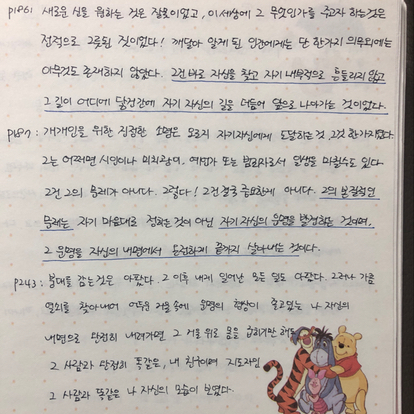 p186: 새로운 신을 원하는 것은 잘못이었고, 이 세상에 그 무엇인가를 주고자 하는 것은
전적으로 그릇된 짓이었다! 깨달아 알게 된 인간에게는 단 한가지 의무외에는
아무것도 존재하지 않았다. 그건 바로 자신을 찾고 자기 내부적으로 흔들리지 않고
그 길이 어디에 닿건간에 자기 자신의 길을 더듬어 앞으로 나아가는 것이었다.
p187: 개개인을 위한 진정한 소명은 오로지 자기자신에게 도달하는 것, 그것 한가지였다
그는 어쩌면 시인이나 미치광이, 예언가 또는 범죄자로서 일생을 마칠수도 있다
그건 그의 문제가 아니다. 그렇다! 그건 결국 중요한게 아니다. 그의 본질적인
문제는 자기 마음대로 정하는 것이 아닌 자기 자신의 운명을 발견하는 것이며,
그 운명을 자신의 내면에서 온전하게 끝까지 살아내는 것이다.
p243: 붕대를 감는 것은 아팠다. 그 이후 내게 일어난 모든 일도 아팠다. 그러나 가끔
열쇠를 찾아내어 어두운 거울 속에 운명의 형상이 졸고있는 나 자신의
내면으로 단전히 내려가면 그 거울 위로 몸을 굽히기만 해도
그 사람과 단전히 똑같은, 내 친구이며 지도자인
그 사람과 똑같은 나 자신의 모습이 보였다.